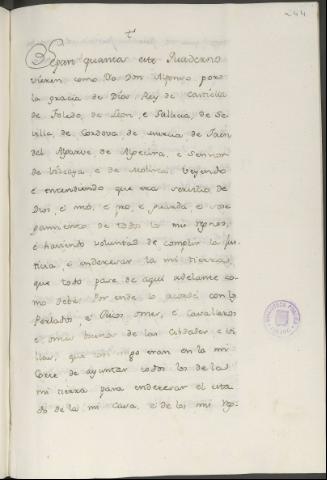 244
Sepan quantos este Quaderno
vieren como Yo Don Alfonso por
la gracia de Dios Rey de Castilla
de Toledo, de Leon, e Gallicia, de Se-
villa, de Cordova, de Murcia de Jaén
del Algarve de Algecira, e Sennor
de Vizcaya, e de Molina: veyendo
e entendiendo que era servicio de
Dios, e mio, e pro, e guarda, e
de todos los mis regnos,
e haviendo voluntad de complir la jus-
ticia, e enderezar la mi tierra,
que todo pase de aqui adelante co-
mo debe. Por ende lo acordé con los
Perlados, e Ricos omes, e Cavalleros
e omes buenos de las Cibdades e vi-
llas, que con migo eran en la mi
Corte de ayuntar todos los de la
mi tierra para enderezar el esta-
do de la mi Casa, e de los mis reg-